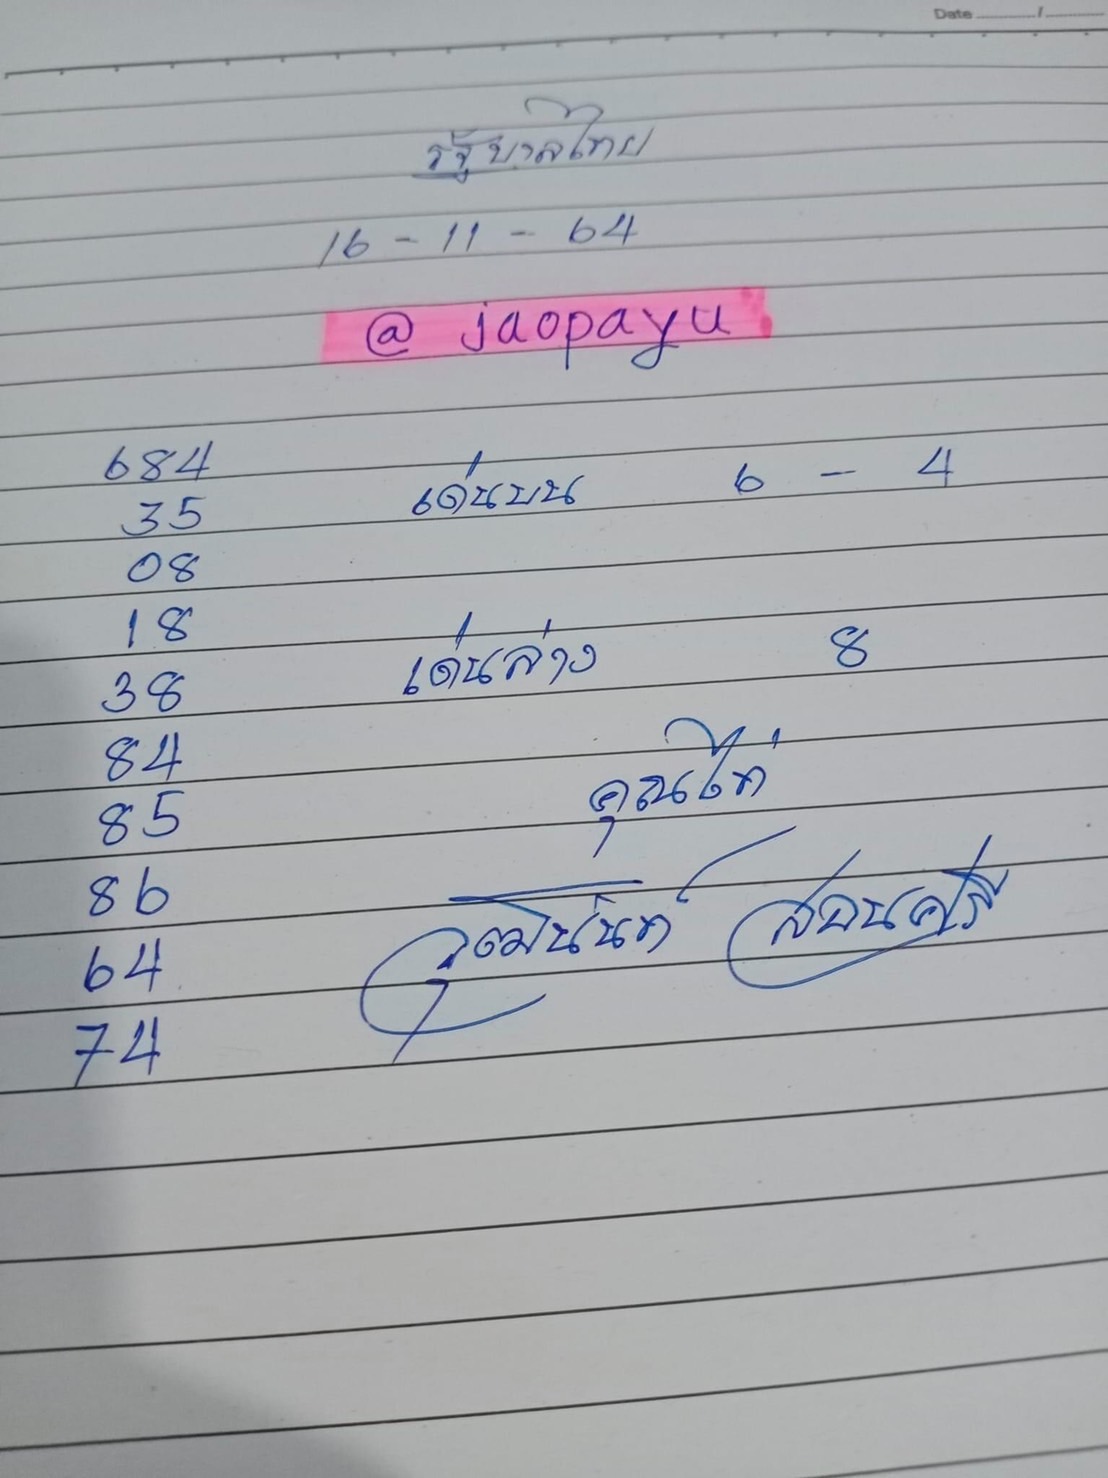 Date ............/............
รัฐบาลไทย
16 - 11 - 64
@ jaopayu
684
35 เด่นบน 6 - 4
08
18
38 เด่นล่าง 8
84
85 คุณไก่
86
64 วุฒินันท์ สอนศรี
74